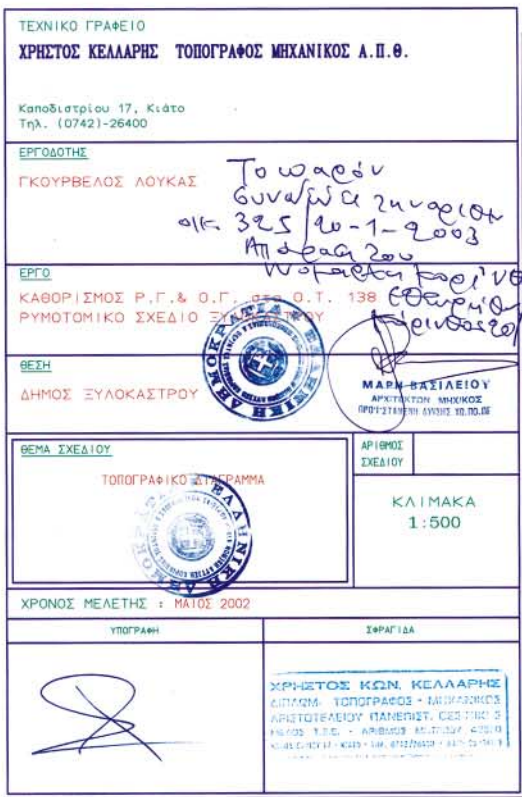 ΤΕΧΝΙΚΟ ΓΡΑΦΕΙΟ
ΧΡΗΣΤΟΣ ΚΕΛΛΑΡΗΣ ΤΟΠΟΓΡΑΦΟΣ ΜΗΧΑΝΙΚΟΣ Α.Π.Θ.
Καποδιστρίου 17, Κιάτο
Τηλ. (0742)-26400
ΕΡΓΟΔΟΤΗΣ
ΓΚΟΥΡΒΕΛΟΣ ΛΟΥΚΑΣ
Το παρόν
συνοδεύει την αριθμ
325/20-1-2003
Απόφαση του
Νομάρχη Κορινθ
ΕΡΓΟ
ΚΑΘΟΡΙΣΜΟΣ Ρ.Γ.& Ο.Γ. στο Ο.Τ. 138
ΡΥΜΟΤΟΜΙΚΟ ΣΧΕΔΙΟ ΞΥΛΟΚΑΣΤΡΟΥ
ΘΕΣΗ
ΔΗΜΟΣ ΞΥΛΟΚΑΣΤΡΟΥ
ΕΛΛΗΝΙΚΗ ΔΗΜΟΚΡΑΤΙΑ
ΜΑΡΗ ΒΑΣΙΛΕΙΟΥ
ΑΡΧΙΤΕΚΤΩΝ ΜΗΧ/ΚΟΣ
ΘΕΜΑ ΣΧΕΔΙΟΥ
ΤΟΠΟΓΡΑΦΙΚΟ ΔΙΑΓΡΑΜΜΑ
ΕΛΛΗΝΙΚΗ ΔΗΜΟΚΡΑΤΙΑ
ΑΡΙΘΜΟΣ
ΣΧΕΔΙΟΥ
ΚΛΙΜΑΚΑ
1:500
ΧΡΟΝΟΣ ΜΕΛΕΤΗΣ : ΜΑΙΟΣ 2002
ΥΠΟΓΡΑΦΗ
ΣΦΡΑΓΙΔΑ
ΧΡΗΣΤΟΣ ΚΩΝ. ΚΕΛΛΑΡΗΣ
ΔΙΠΛΩΜ. ΤΟΠΟΓΡΑΦΟΣ - ΜΗΧΑΝΙΚΟΣ
ΑΡΙΣΤΟΤΕΛΕΙΟΥ ΠΑΝΕΠΙΣΤ.
ΜΕΛΟΣ Τ.Ε.Ε. - ΑΡΙΘΜΟΣ ΜΗΤΡΩΟΥ